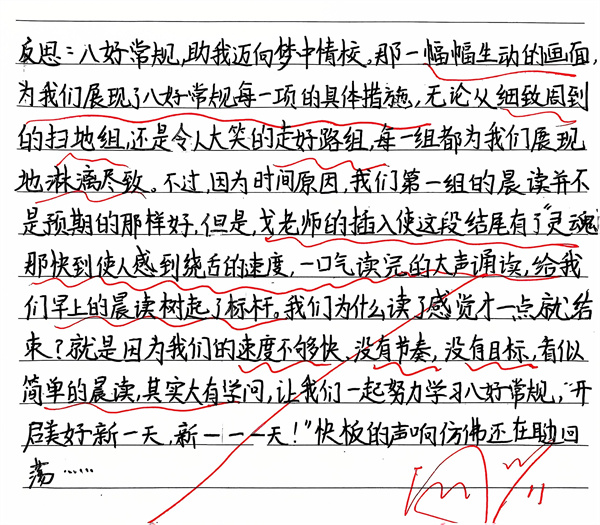 反思：八好常规，助我迈向梦中情校。那一幅幅生动的画面，
为我们展现了八好常规每一项的具体措施，无论从细致周到
的扫地组，还是令人大笑的走好路组，每一组都为我们展现
地淋漓尽致。不过，因为时间原因，我们第一组的晨读并不
是预期的那样好，但是，戈老师的插入使这段结尾有了“灵魂
那快到使人感到绕舌的速度，一口气读完的大声诵读，给我
们早上的晨读树起了标杆。我们为什么读了感觉才一点就结
束？就是因为我们的速度不够快、没有节奏，没有目标，看似
简单的晨读，其实大有学问，让我们一起努力学习八好常规，“开
启美好新一天，新一一一天！”快板的声响仿佛还在耳边回
荡……